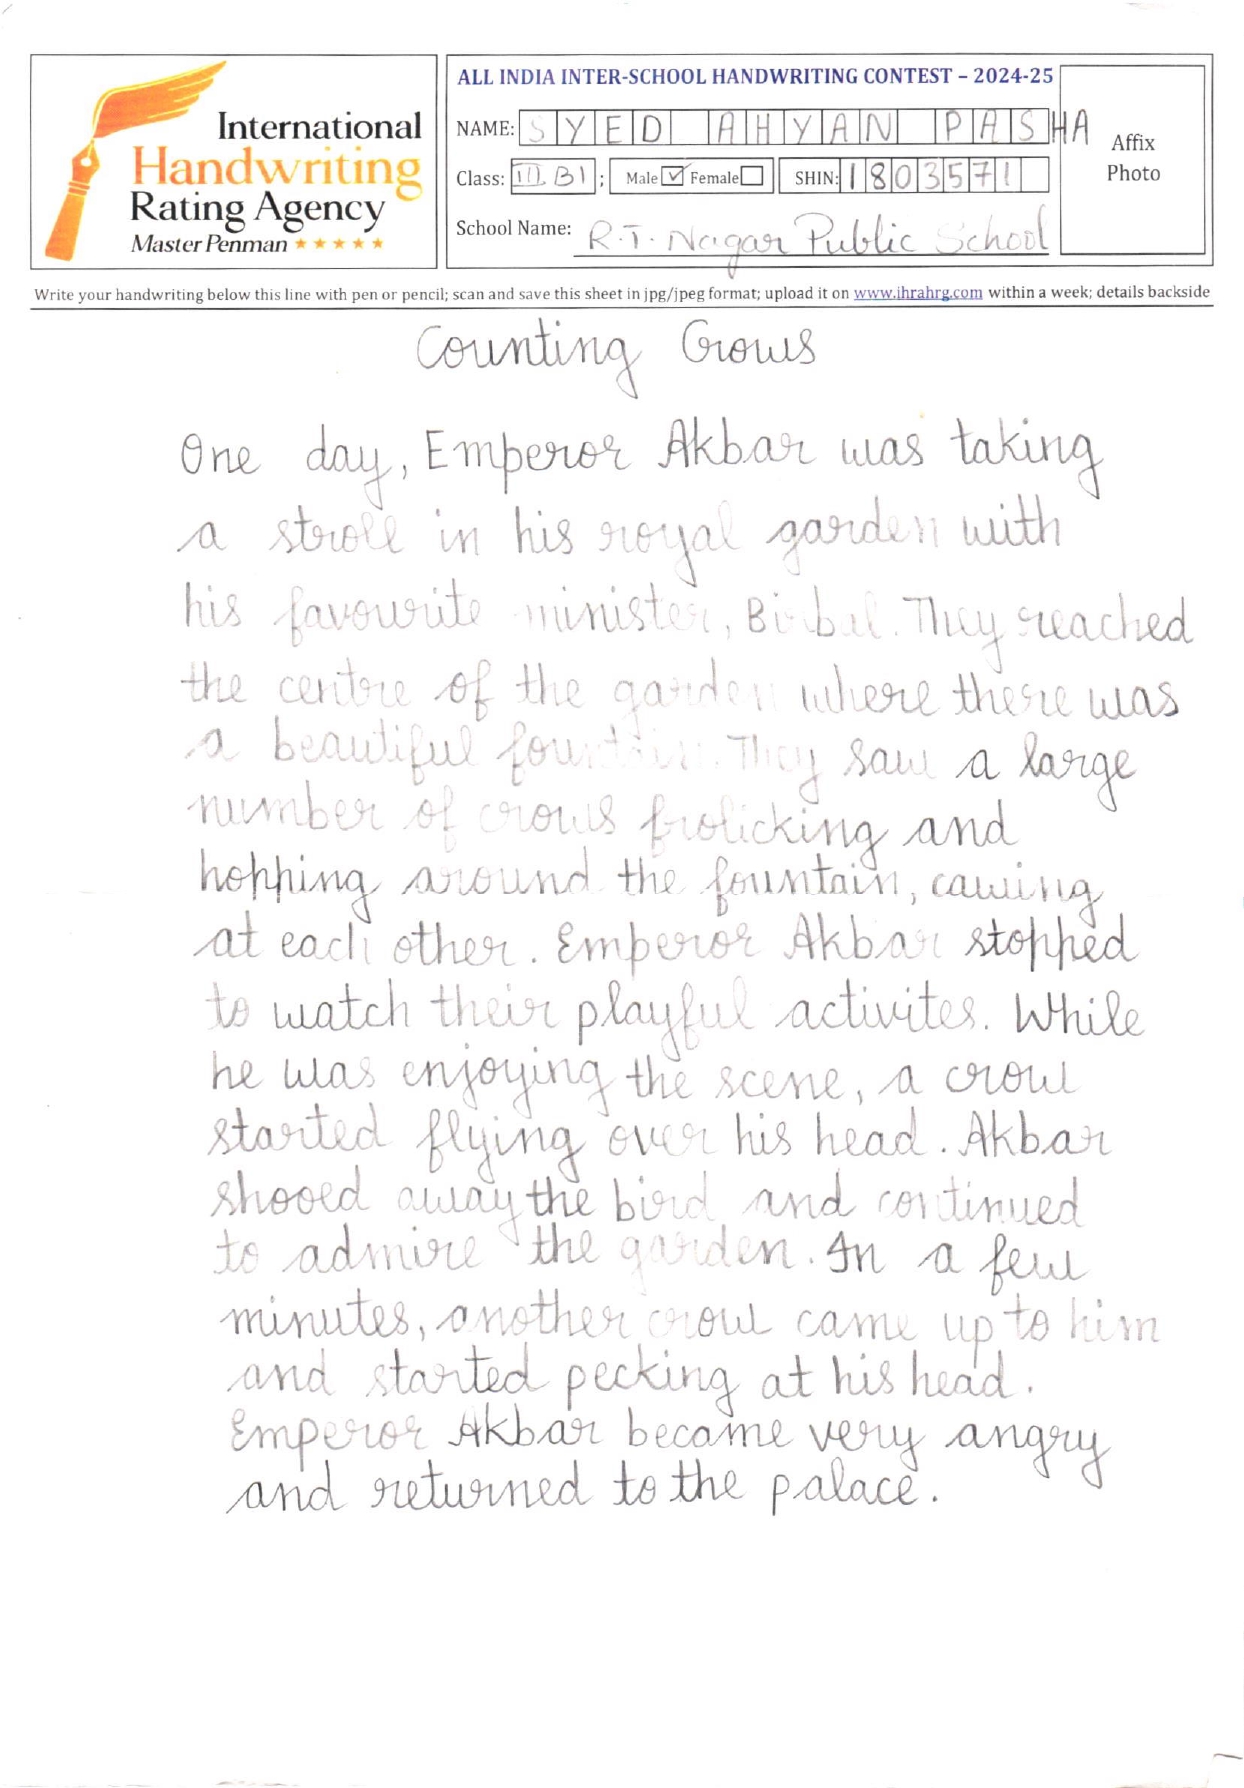 International
Handwriting
Rating Agency
Master Penman
ALL INDIA INTER-SCHOOL HANDWRITING CONTEST – 2024-25
NAME: SYED AHYAN PASHA
Class: III. B1 ; Male ☑ Female ☐ SHIN: 1803571
School Name: R.T. Nagar Public School
Affix
Photo
Write your handwriting below this line with pen or pencil; scan and save this sheet in jpg/jpeg format; upload it on www.ihrahrg.com within a week; details backside
Counting Crows
One day, Emperor Akbar was taking
a stroll in his royal garden with
his favourite minister, Birbal. They reached
the centre of the garden where there was
a beautiful fountain. They saw a large
number of crows frolicking and
hopping around the fountain, cawing
at each other. Emperor Akbar stopped
to watch their playful activites. While
he was enjoying the scene, a crow
started flying over his head. Akbar
shooed away the bird and continued
to admire the garden. In a few
minutes, another crow came up to him
and started pecking at his head.
Emperor Akbar became very angry
and returned to the palace.